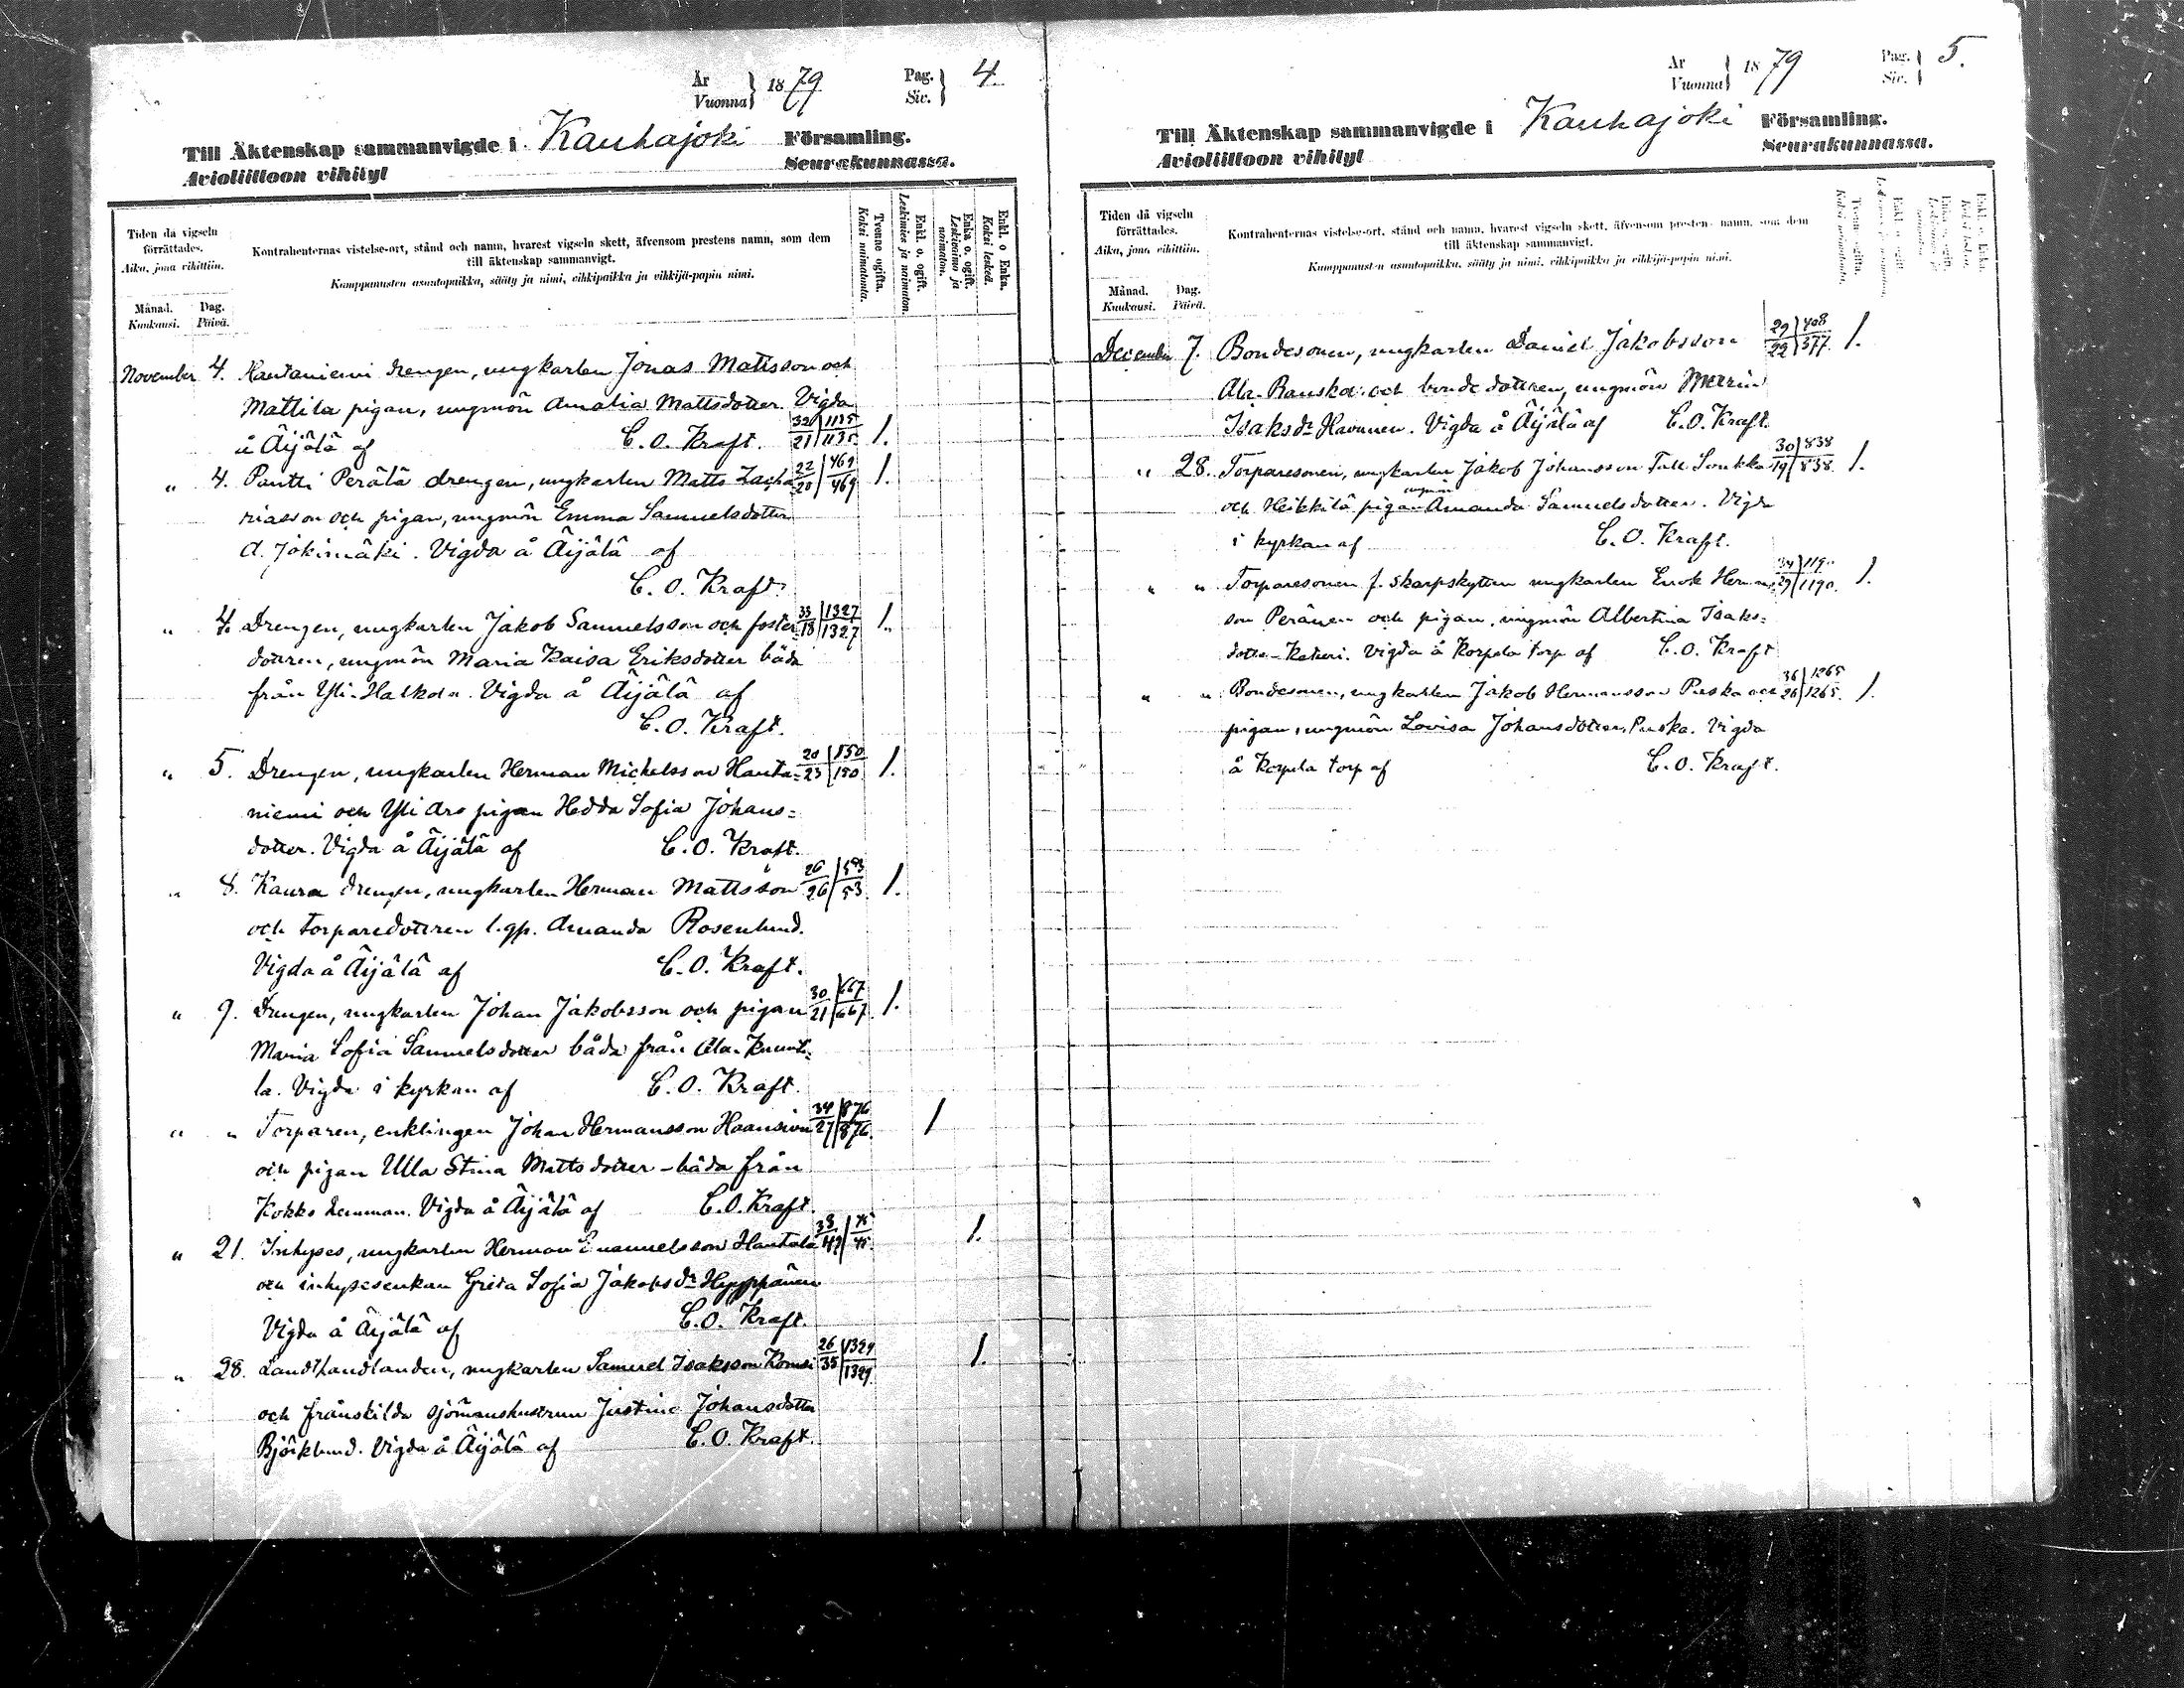 År
Vuonna } 1879 Pag.
Siv. } 4
Till Äktenskap sammanvigde i Kauhajoki Församling.
Avioliittoon vihityt Seurakunnassa.
Tiden då vigseln förrättades.
Aika, jona vihittiin.
Månad. Dag.
Kuukausi. Päivä.
Kontrahenternas vistelse-ort, stånd och namn, hvarest vigseln skett, äfvensom prestens namn, som dem
till äktenskap sammanvigt.
Kumppanusten asuntopaikka, sääty ja nimi, vihkipaikka ja vihkijä-papin nimi.
Tvenne ogifta.
Kaksi naimatonta.
Enkl. o. ogift.
Leskimies ja naimaton.
Enka o. ogift.
Leskivaimo ja naimaton.
Enkl. o Enka.
Kaksi leskeä.
November 4. Hautaniemi drengen, ungkarlen Jonas Mattsson och
Mattila pigan, ungmön Amalia Mattsdotter. Vigda
å Äijälä af C. O. Kraft. 32/21 1135/1135 1.
" 4. Pantti Perälä drengen, ungkarlen Matts Zacha= 22/20 469/469 1.
riasson och pigan, ungmön Emma Samuelsdotter
A. Jokimäki. Vigda å Äijälä af
C. O. Kraft.
" 4. Drengen, ungkarlen Jakob Samuelsson och foster= 33/18 1327/1327 1.
dottren, ungmön Maria Kaisa Eriksdotter båda
från Yli-Halkola. Vigda å Äijälä af
C. O. Kraft.
" 5. Drengen, ungkarlen Herman Michelsson Hauta= 20/23 150/150 1.
niemi och Yli Aro pigan Hedda Sofia Johans=
dotter. Vigda å Äijälä af C. O. Kraft.
" 8. Kaura drengen, ungkarlen Herman Mattsson 26/26 53/53 1.
och torparedottren l.qp. Amanda Rosenlund.
Vigda å Äijälä af C. O. Kraft.
" 9. Drengen, ungkarlen Johan Jakobsson och pigan 30/21 667/667 1.
Maria Sofia Samuelsdotter båda från Ala-Knuut=
la. Vigda i kyrkan af C. O. Kraft.
" " Torparen, enklingen Johan Hermansson Haansivu 34/27 876/876. 1
och pigan Ulla Stina Mattsdotter - båda från
Kokko hemman. Vigda å Äijälä af C. O. Kraft.
" 21. Inhyses, ungkarlen Herman Emanuelsson Hautala 1.
och inhysesenkan Greta Sofia Jakobsdr Hyyppänen
Vigda å Äijälä af C. O. Kraft.
" 28. Landthandlanden, ungkarlen Samuel Isaksson Komsi 26/35 1329/1329. 1.
och frånskilda sjömanshustrun Justina Johansdotter
Björklund. Vigda å Äijälä af C. O. Kraft.
År
Vuonna } 1879 Pag.
Siv. } 5.
Till Äktenskap sammanvigde i Kauhajoki Församling.
Avioliittoon vihityt Seurakunnassa.
Tiden då vigseln förrättades.
Aika, jona vihittiin.
Månad. Dag.
Kuukausi. Päivä.
Kontrahenternas vistelse-ort, stånd och namn, hvarest vigseln skett, äfvensom prestens namn, som dem
till äktenskap sammanvigt.
Kumppanusten asuntopaikka, sääty ja nimi, vihkipaikka ja vihkijä-papin nimi.
December 7. Bondesonen, ungkarlen Daniel Jakobsson 29/22 408/377. 1.
Ala-Rauska och bondedottren, ungmön
Isaksdr Havunen. Vigda å Äijälä af C. O. Kraft.
" 28. Torparesonen, ungkarlen Jakob Johansson Tall Loukko 30/19 838/838. 1.
och Heikkilä pigan ungmön Amanda Samuelsdotter. Vigda
i kyrkan af C. O. Kraft.
" " Torparesonen f. skarpskytten ungkarlen Enok Hermans= 34/29 1190/1190. 1.
son Peränen och pigan, ungmön Albertina Isaks=
dotter Keturi. Vigda å Korpela torp af C. O. Kraft
" " Bondesonen, ungkarlen Jakob Hermansson Puska och 36/26 1265/1265. 1.
pigan, ungmön Lovisa Johansdotter Puska. Vigda
å Korpela torp af C. O. Kraft.